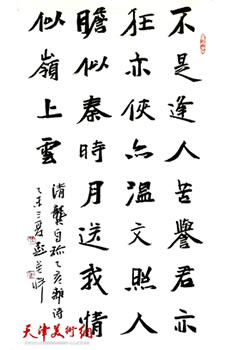 不是逢人苦譽君亦
狂亦俠亦溫文照人
膽似秦時月送我情
似嶺上雲
清龔自珍己亥雜詩
乙未
天津美術網